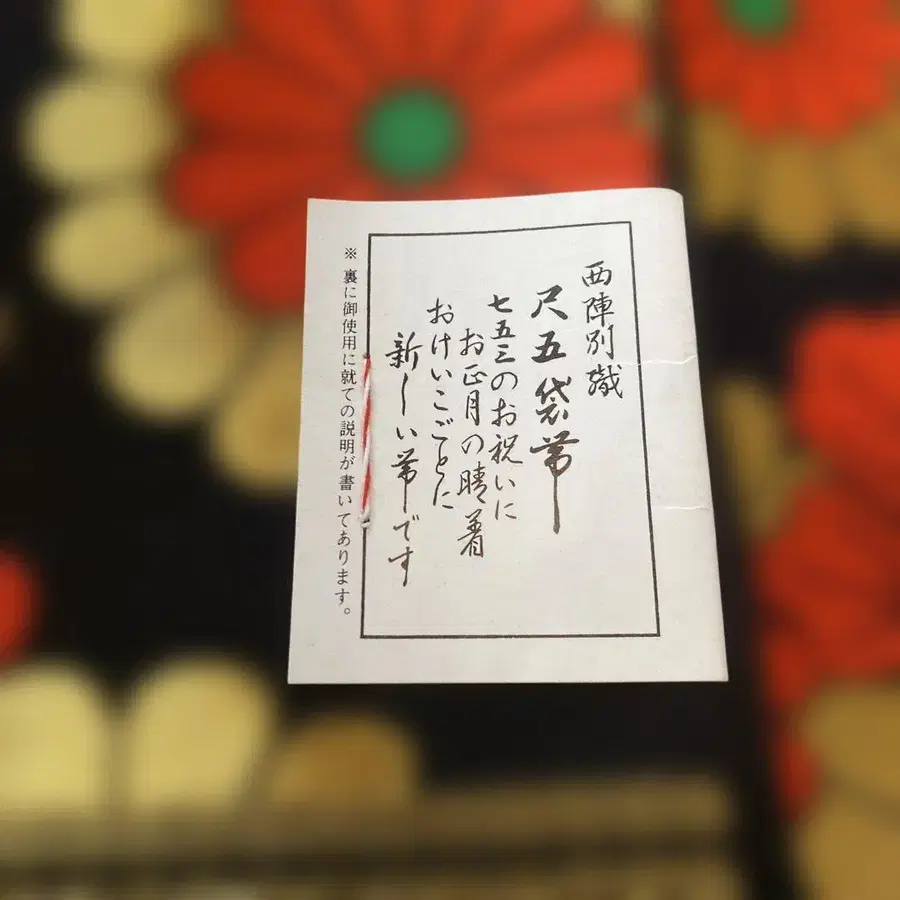 西陣別織
尺五袋帯
七五三のお祝いに
お正月の晴着
おけいこごとに
新しい帯です
※ 裏に御使用に就ての説明が書いてあります。